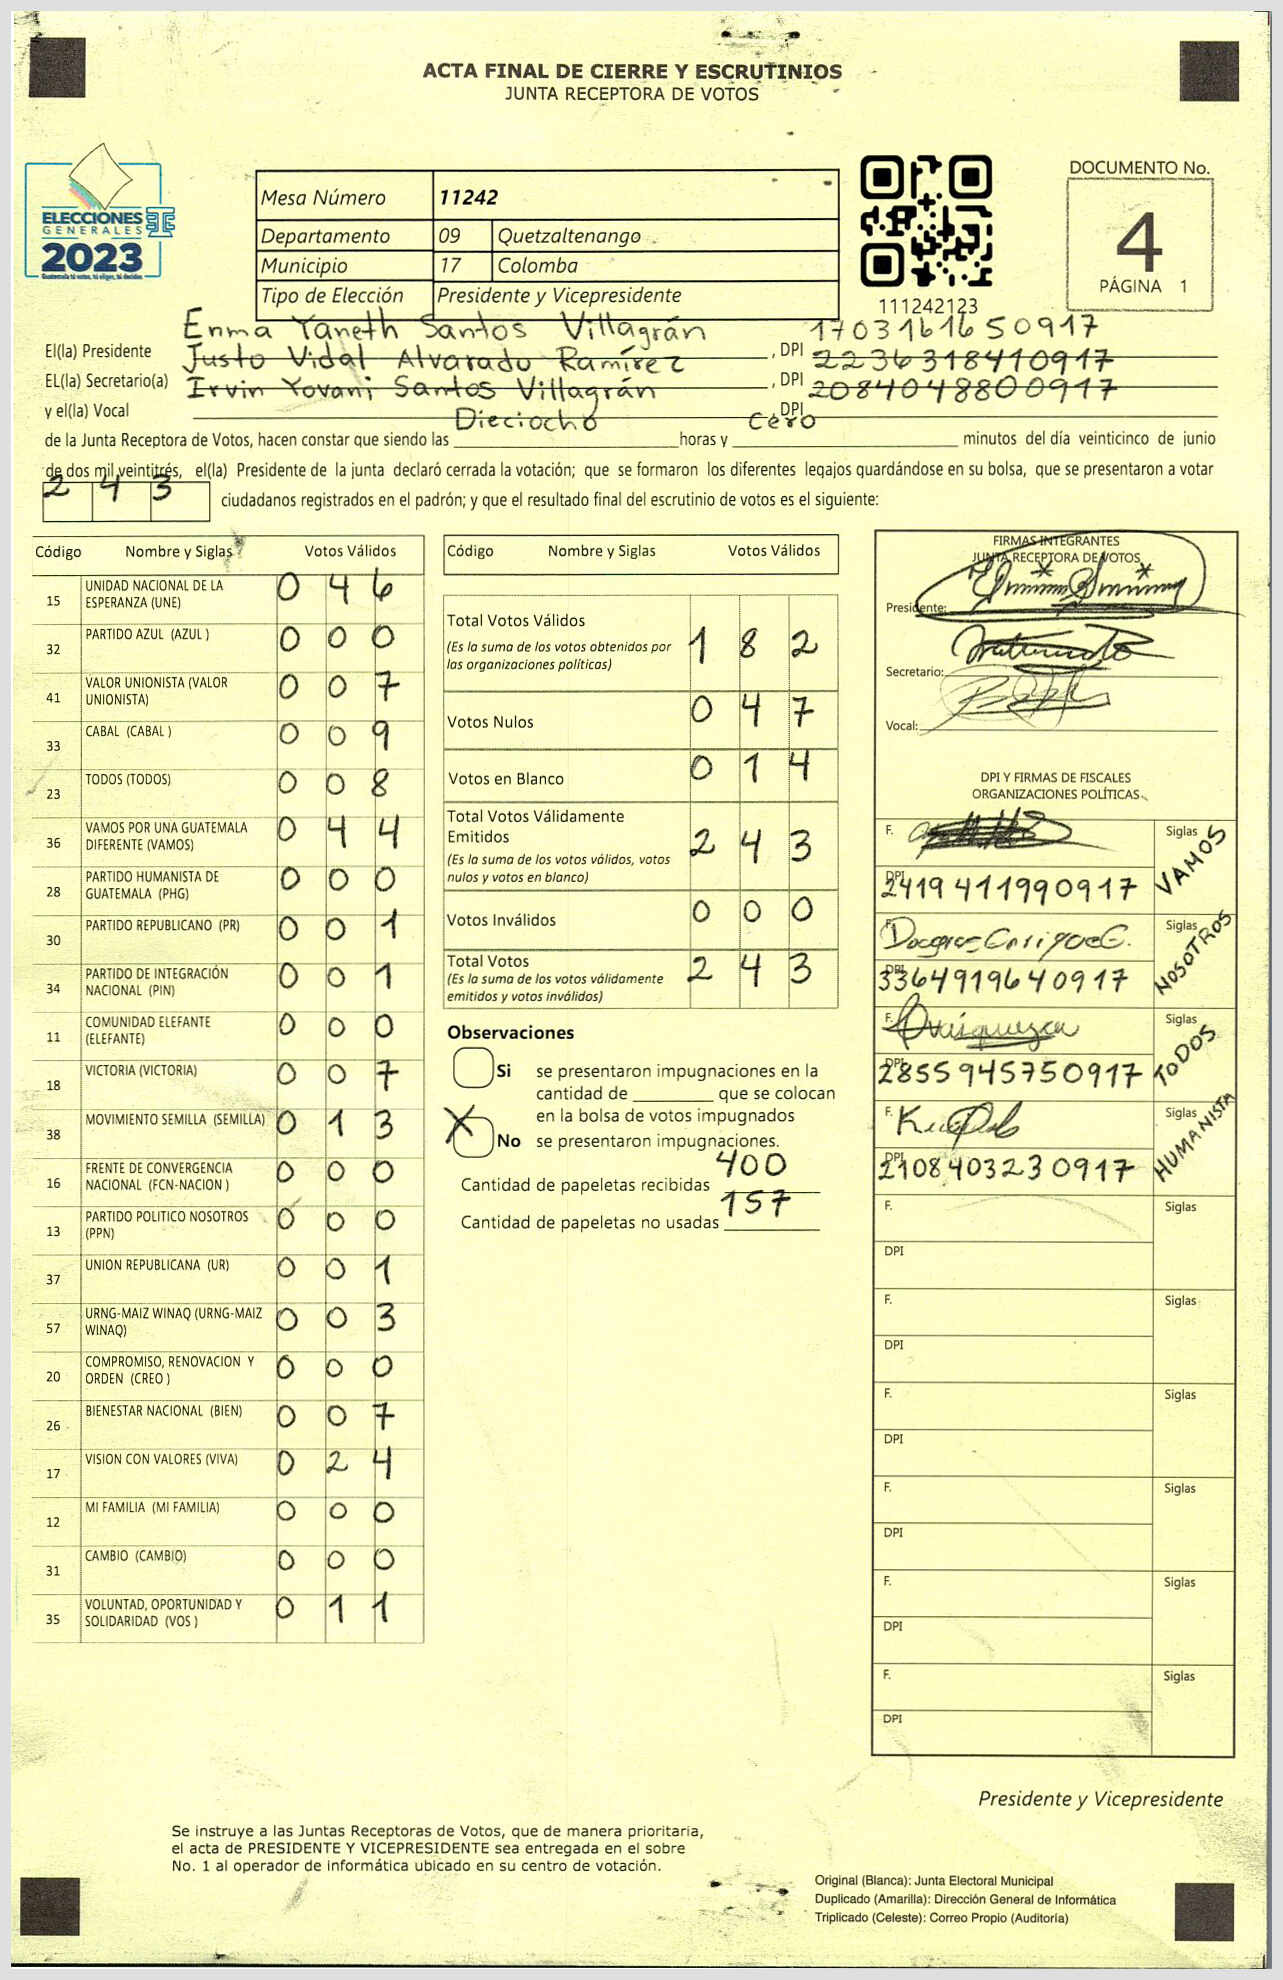 ACTA FINAL DE CIERRE Y ESCRUTINIOS
JUNTA RECEPTORA DE VOTOS
ELECCIONES
GENERALES
2023
Guatemala tú votas, tú eliges, tú decides
Mesa Número 11242
Departamento 09 Quetzaltenango
Municipio 17 Colomba
Tipo de Elección Presidente y Vicepresidente
111242123
DOCUMENTO No.
4
PÁGINA 1
El(la) Presidente Enma Yaneth Santos Villagrán , DPI 1703161650917
EL(la) Secretario(a) Justo Vidal Alvarado Ramírez , DPI 2236318410917
y el(la) Vocal Irvin Yovani Santos Villagrán , DPI 2084048800917
de la Junta Receptora de Votos, hacen constar que siendo las Dieciocho horas y Cero minutos del día veinticinco de junio
de dos mil veintitrés, el(la) Presidente de la junta declaró cerrada la votación; que se formaron los diferentes legajos guardándose en su bolsa, que se presentaron a votar
243 ciudadanos registrados en el padrón; y que el resultado final del escrutinio de votos es el siguiente:
Código Nombre y Siglas Votos Válidos
15 UNIDAD NACIONAL DE LA ESPERANZA (UNE) 0 4 6
32 PARTIDO AZUL (AZUL ) 0 0 0
41 VALOR UNIONISTA (VALOR UNIONISTA) 0 0 7
33 CABAL (CABAL ) 0 0 9
23 TODOS (TODOS) 0 0 8
36 VAMOS POR UNA GUATEMALA DIFERENTE (VAMOS) 0 4 4
28 PARTIDO HUMANISTA DE GUATEMALA (PHG) 0 0 0
30 PARTIDO REPUBLICANO (PR) 0 0 1
34 PARTIDO DE INTEGRACIÓN NACIONAL (PIN) 0 0 1
11 COMUNIDAD ELEFANTE (ELEFANTE) 0 0 0
18 VICTORIA (VICTORIA) 0 0 7
38 MOVIMIENTO SEMILLA (SEMILLA) 0 1 3
16 FRENTE DE CONVERGENCIA NACIONAL (FCN-NACION ) 0 0 0
13 PARTIDO POLITICO NOSOTROS (PPN) 0 0 0
37 UNION REPUBLICANA (UR) 0 0 1
57 URNG-MAIZ WINAQ (URNG-MAIZ WINAQ) 0 0 3
20 COMPROMISO, RENOVACION Y ORDEN (CREO ) 0 0 0
26 BIENESTAR NACIONAL (BIEN) 0 0 7
17 VISION CON VALORES (VIVA) 0 2 4
12 MI FAMILIA (MI FAMILIA) 0 0 0
31 CAMBIO (CAMBIO) 0 0 0
35 VOLUNTAD, OPORTUNIDAD Y SOLIDARIDAD (VOS ) 0 1 1
Código Nombre y Siglas Votos Válidos
Total Votos Válidos 1 8 2
(Es la suma de los votos obtenidos por
las organizaciones políticas)
Votos Nulos 0 4 7
Votos en Blanco 0 1 4
Total Votos Válidamente
Emitidos 2 4 3
(Es la suma de los votos válidos, votos
nulos y votos en blanco)
Votos Inválidos 0 0 0
Total Votos 2 4 3
(Es la suma de los votos válidamente
emitidos y votos inválidos)
Observaciones
Si se presentaron impugnaciones en la
cantidad de ________ que se colocan
en la bolsa de votos impugnados
X No se presentaron impugnaciones.
Cantidad de papeletas recibidas 400
Cantidad de papeletas no usadas 157
FIRMAS INTEGRANTES
JUNTA RECEPTORA DE VOTOS
Presidente:
Secretario:
Vocal:
DPI Y FIRMAS DE FISCALES
ORGANIZACIONES POLÍTICAS
F. Siglas VAMOS
DPI 2419411990917
F. Siglas NOSOTROS
DPI 3364919640917
F. Siglas TODOS
DPI 2855945750917
F. Siglas HUMANISTA
DPI 2108403230917
F. Siglas
DPI
F. Siglas
DPI
F. Siglas
DPI
F. Siglas
DPI
F. Siglas
DPI
F. Siglas
DPI
Presidente y Vicepresidente
Se instruye a las Juntas Receptoras de Votos, que de manera prioritaria,
el acta de PRESIDENTE Y VICEPRESIDENTE sea entregada en el sobre
No. 1 al operador de informática ubicado en su centro de votación.
Original (Blanca): Junta Electoral Municipal
Duplicado (Amarilla): Dirección General de Informática
Triplicado (Celeste): Correo Propio (Auditoría)